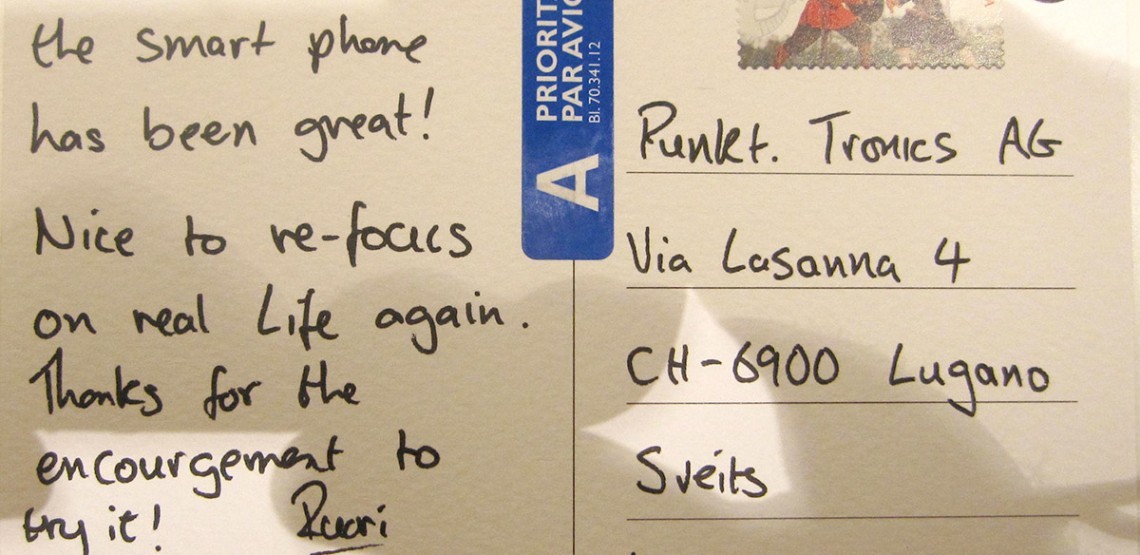 the smart phone
has been great!
Nice to re-focus
on real Life again.
Thanks for the
encourgement to
try it! Ruari
PRIORIT
PAR AVIO
Bl. 70.341.12
A
Punkt. Tronics AG
Via Lasanna 4
CH-6900 Lugano
Sveits